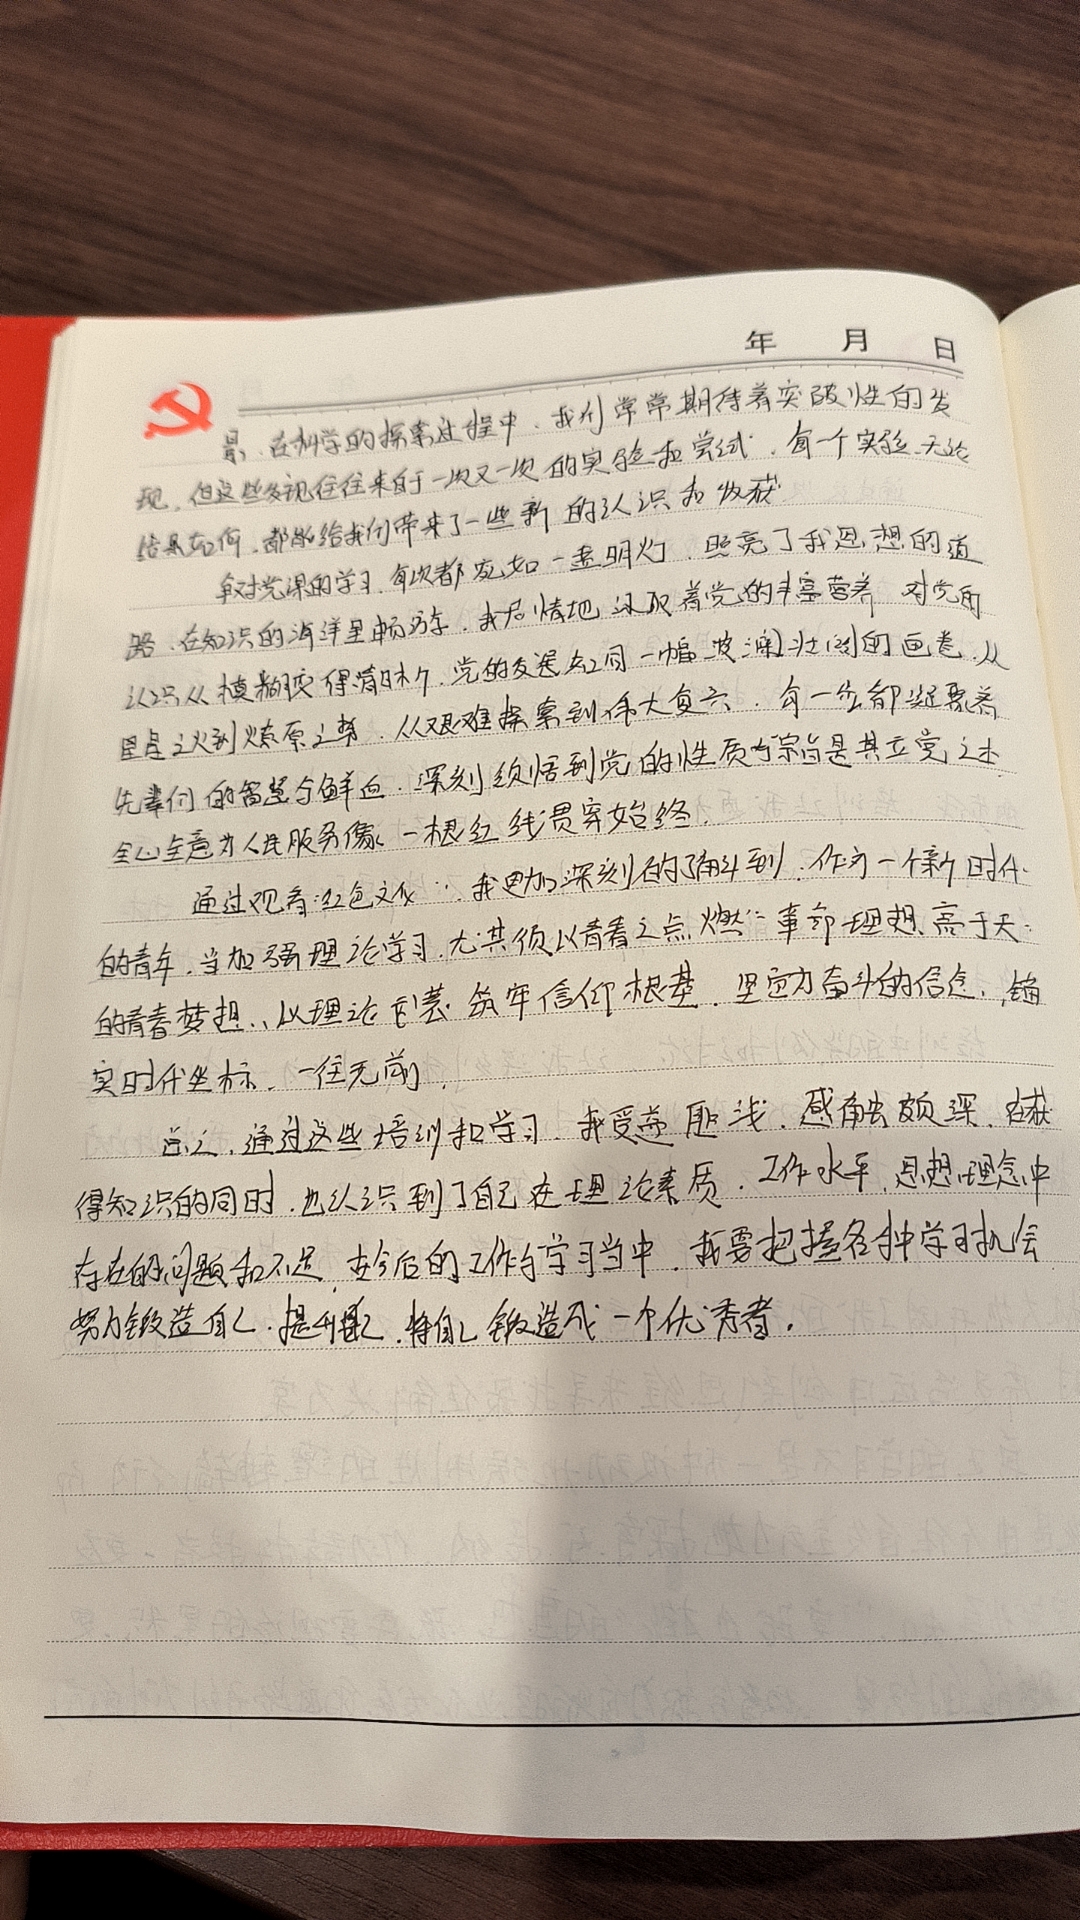 年 月 日
景、在科学的探索过程中、我们常常期待着突破性的发
现、但这些发现往往来自于一次又一次的实验和尝试、每一个实验、无论
结果如何、都能给我们带来了一些新的认识和收获
党课的学习、每次都宛如一盏明灯、照亮了我思想的道
路、在知识的海洋里畅游、我尽情地汲取着党的丰富营养 对党的
认识从模糊变得清晰、党的发展如同一幅波澜壮阔的画卷、从
星星之火到燎原之势、从艰难探索到伟大复兴、每一步都凝聚着
先辈们的智慧与鲜血、深刻领悟到党的性质与宗旨是其立党之本
全心全意为人民服务像一根红线贯穿始终、
通过观看红色文化、我更加深刻的了解到、作为一个新时代
的青年、当加强理论学习、尤其须以青春之点燃 事命理想、高于天
的青春梦想、以理论 筑牢信仰根基、坚定为奋斗的信念、锚
实时代坐标、一往无前、
总之、通过这些培训和学习、我受益匪浅、感触颇深、在获
得知识的同时、也认识到了自己在理论素质、工作水平、思想理念中
存在的问题和不足、在今后的工作与学习当中、我要把握各种学习机会
努力锻造自己、提升自己、将自己锻造成一个优秀者。